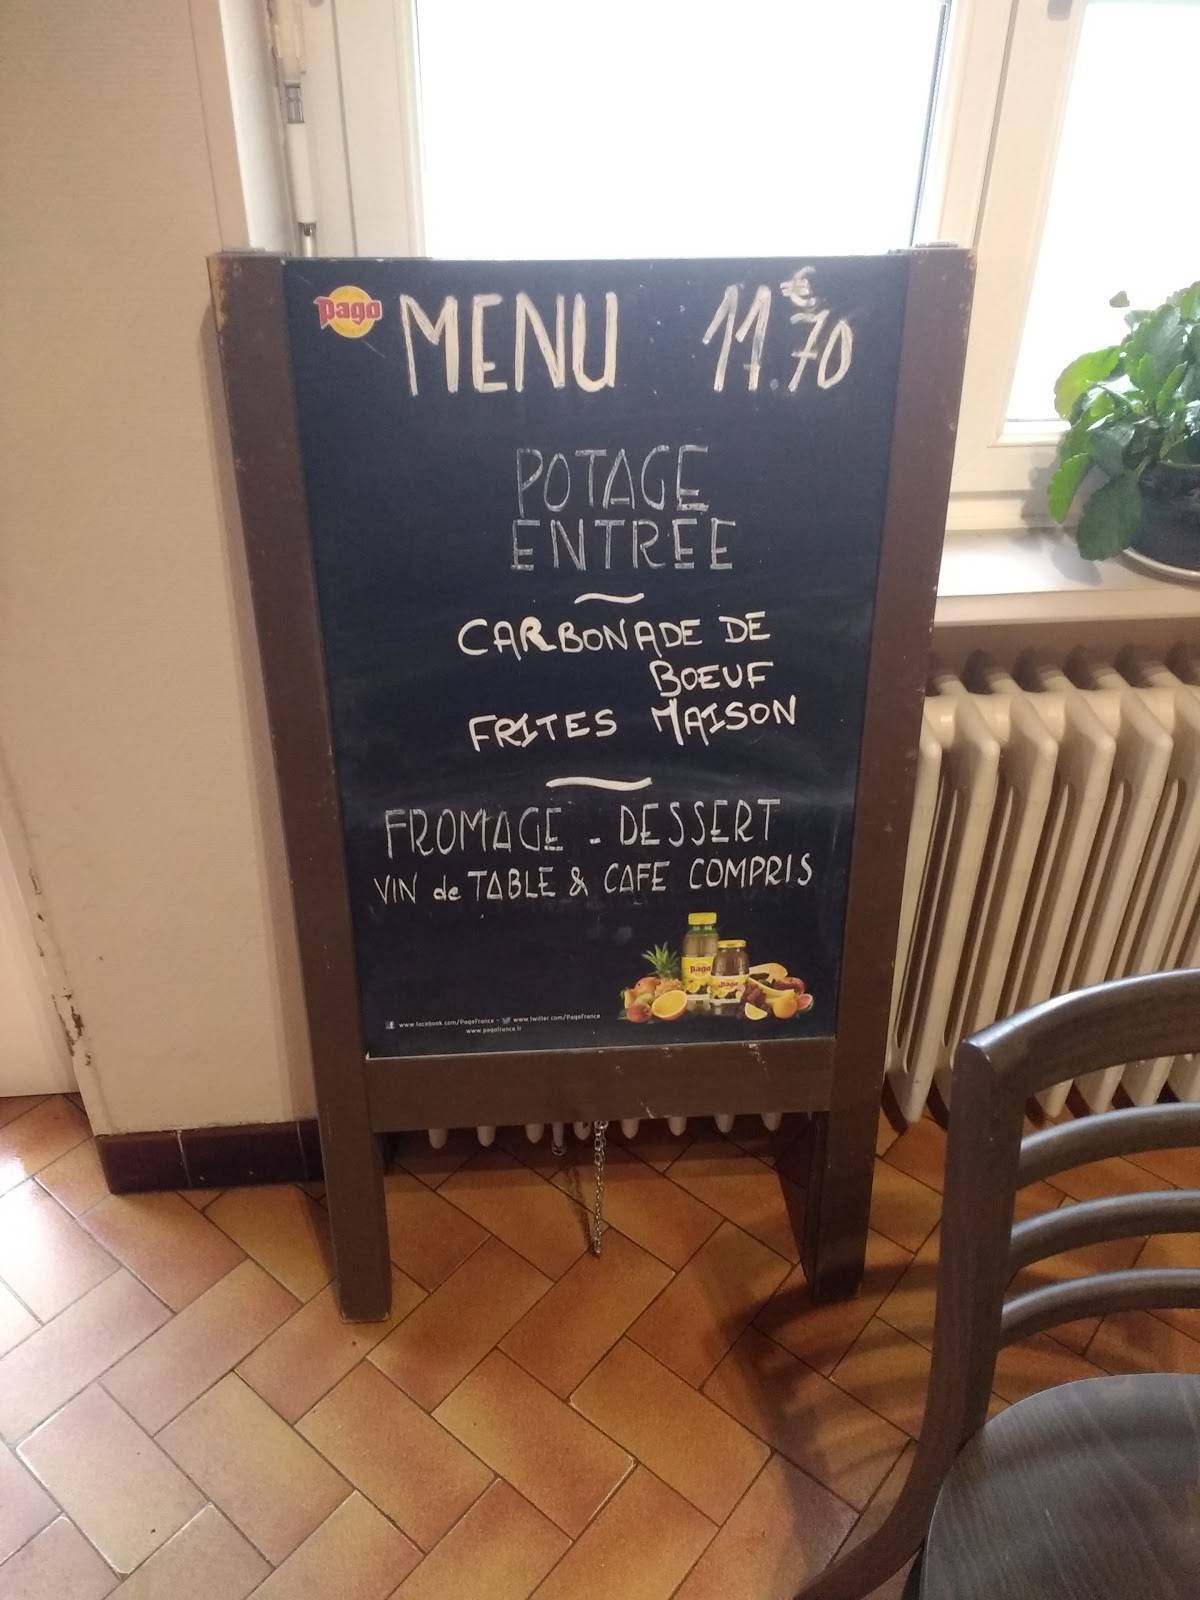 pago
MENU 11.70 €
POTAGE
ENTREE
CARBONADE DE
BOEUF
FRITES MAISON
FROMAGE - DESSERT
VIN de TABLE & CAFE COMPRIS
pago
pago
www.facebook.com/PagoFrance - www.twitter.com/PagoFrance
www.pagofrance.fr